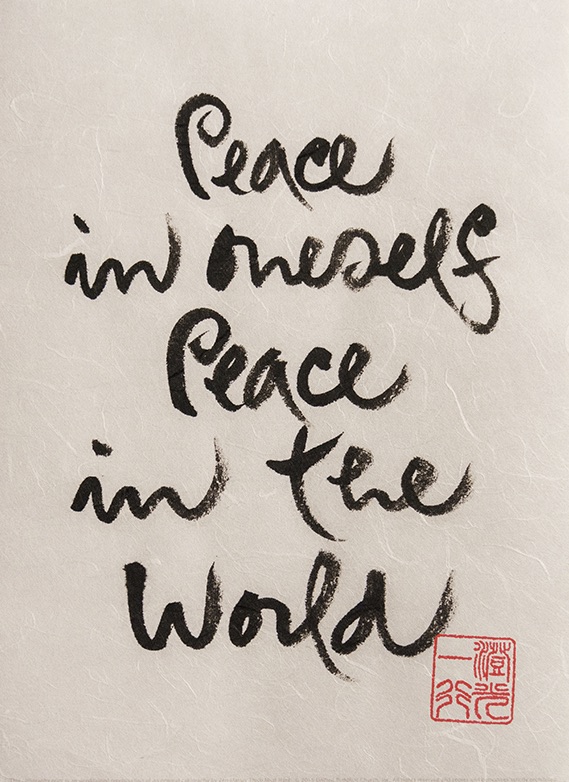 Peace
in oneself
Peace
in the
World
澄光
一行